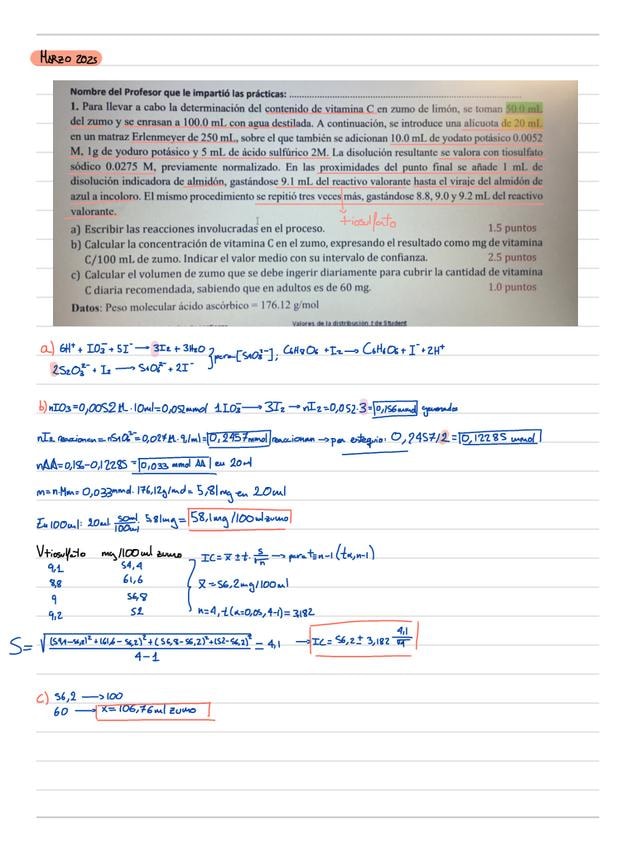 MARZO 2025
Nombre del Profesor que le impartió las prácticas: ..............................
1. Para llevar a cabo la determinación del contenido de vitamina C en zumo de limón, se toman 50.0 mL
del zumo y se enrasan a 100.0 mL con agua destilada. A continuación, se introduce una alícuota de 20 mL
en un matraz Erlenmeyer de 250 mL, sobre el que también se adicionan 10.0 mL de yodato potásico 0.0052
M, 1g de yoduro potásico y 5 mL de ácido sulfúrico 2M. La disolución resultante se valora con tiosulfato
sódico 0.0275 M, previamente normalizado. En las proximidades del punto final se añade 1 mL de
disolución indicadora de almidón, gastándose 9.1 mL del reactivo valorante hasta el viraje del almidón de
azul a incoloro. El mismo procedimiento se repitió tres veces más, gastándose 8.8, 9.0 y 9.2 mL del reactivo
valorante.
tiosulfato
a) Escribir las reacciones involucradas en el proceso. 1.5 puntos
b) Calcular la concentración de vitamina C en el zumo, expresando el resultado como mg de vitamina
C/100 mL de zumo. Indicar el valor medio con su intervalo de confianza. 2.5 puntos
c) Calcular el volumen de zumo que se debe ingerir diariamente para cubrir la cantidad de vitamina
C diaria recomendada, sabiendo que en adultos es de 60 mg. 1.0 puntos
Datos: Peso molecular ácido ascórbico = 176.12 g/mol
Valores de la distribución t de Student
a) 6H⁺ + IO₃⁻ + 5I⁻ → 3I₂ + 3H₂O
2S₂O₃²⁻ + I₂ → S₄O₆²⁻ + 2I⁻
C₆H₈O₆ + I₂ → C₆H₆O₆ + I⁻ + 2H⁺
b) nIO₃ = 0,0052 M · 10ml = 0,052mmol 1 IO₃⁻ → 3I₂ → nI₂ = 0,052·3 = 0,156 mmol generados
= 0,2457 mmol reaccionan → por estequio: 0,2457/2 = 0,12285 mmol
nAA = 0,156 - 0,12285 = 0,033 mmol AA en 20ml
m = n·Mm = 0,033mmol · 176,12g/mol = 5,81mg en 20ml
En 100ml: 20ml 50ml/100ml 5,81mg = 58,1mg/100ml zumo
Vtiosulfato mg/100ml zumo
9,1 54,4
8,8 61,6
9 56,8
9,2 52
IC = x̄ ± t · s/√n → para t = n-1 (tα, n-1)
x̄ = 56,2mg/100ml
n = 4, t (α=0,05, 4-1) = 3182
S = √((54,4-56,2)² + (61,6-56,2)² + (56,8-56,2)² + (52-56,2)² / 4-1) = 4,1 → IC = 56,2 ± 3,182 4,1/√4
c) 56,2 → 100
60 → x = 106,76ml zumo